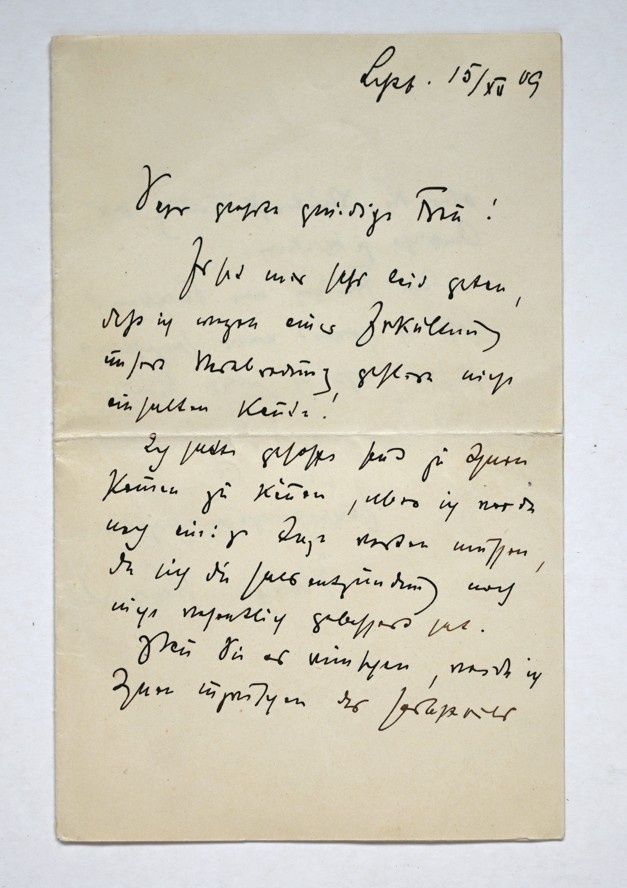 Lpzg. 15/XII 09
Sehr geehrte gnädige Frau!
Es hat mir sehr leid getan,
daß ich wegen einer Erkältung
unsere Verabredung gestern nicht
einhalten konnte!
Ich hatte gehofft heute zu Ihnen
kommen zu können, aber ich werde
noch einige Tage warten müssen,
da sich die Halsentzündung noch
nicht wesentlich gebessert hat.
Wenn Sie es wünschen, werde ich
Ihnen inzwischen das